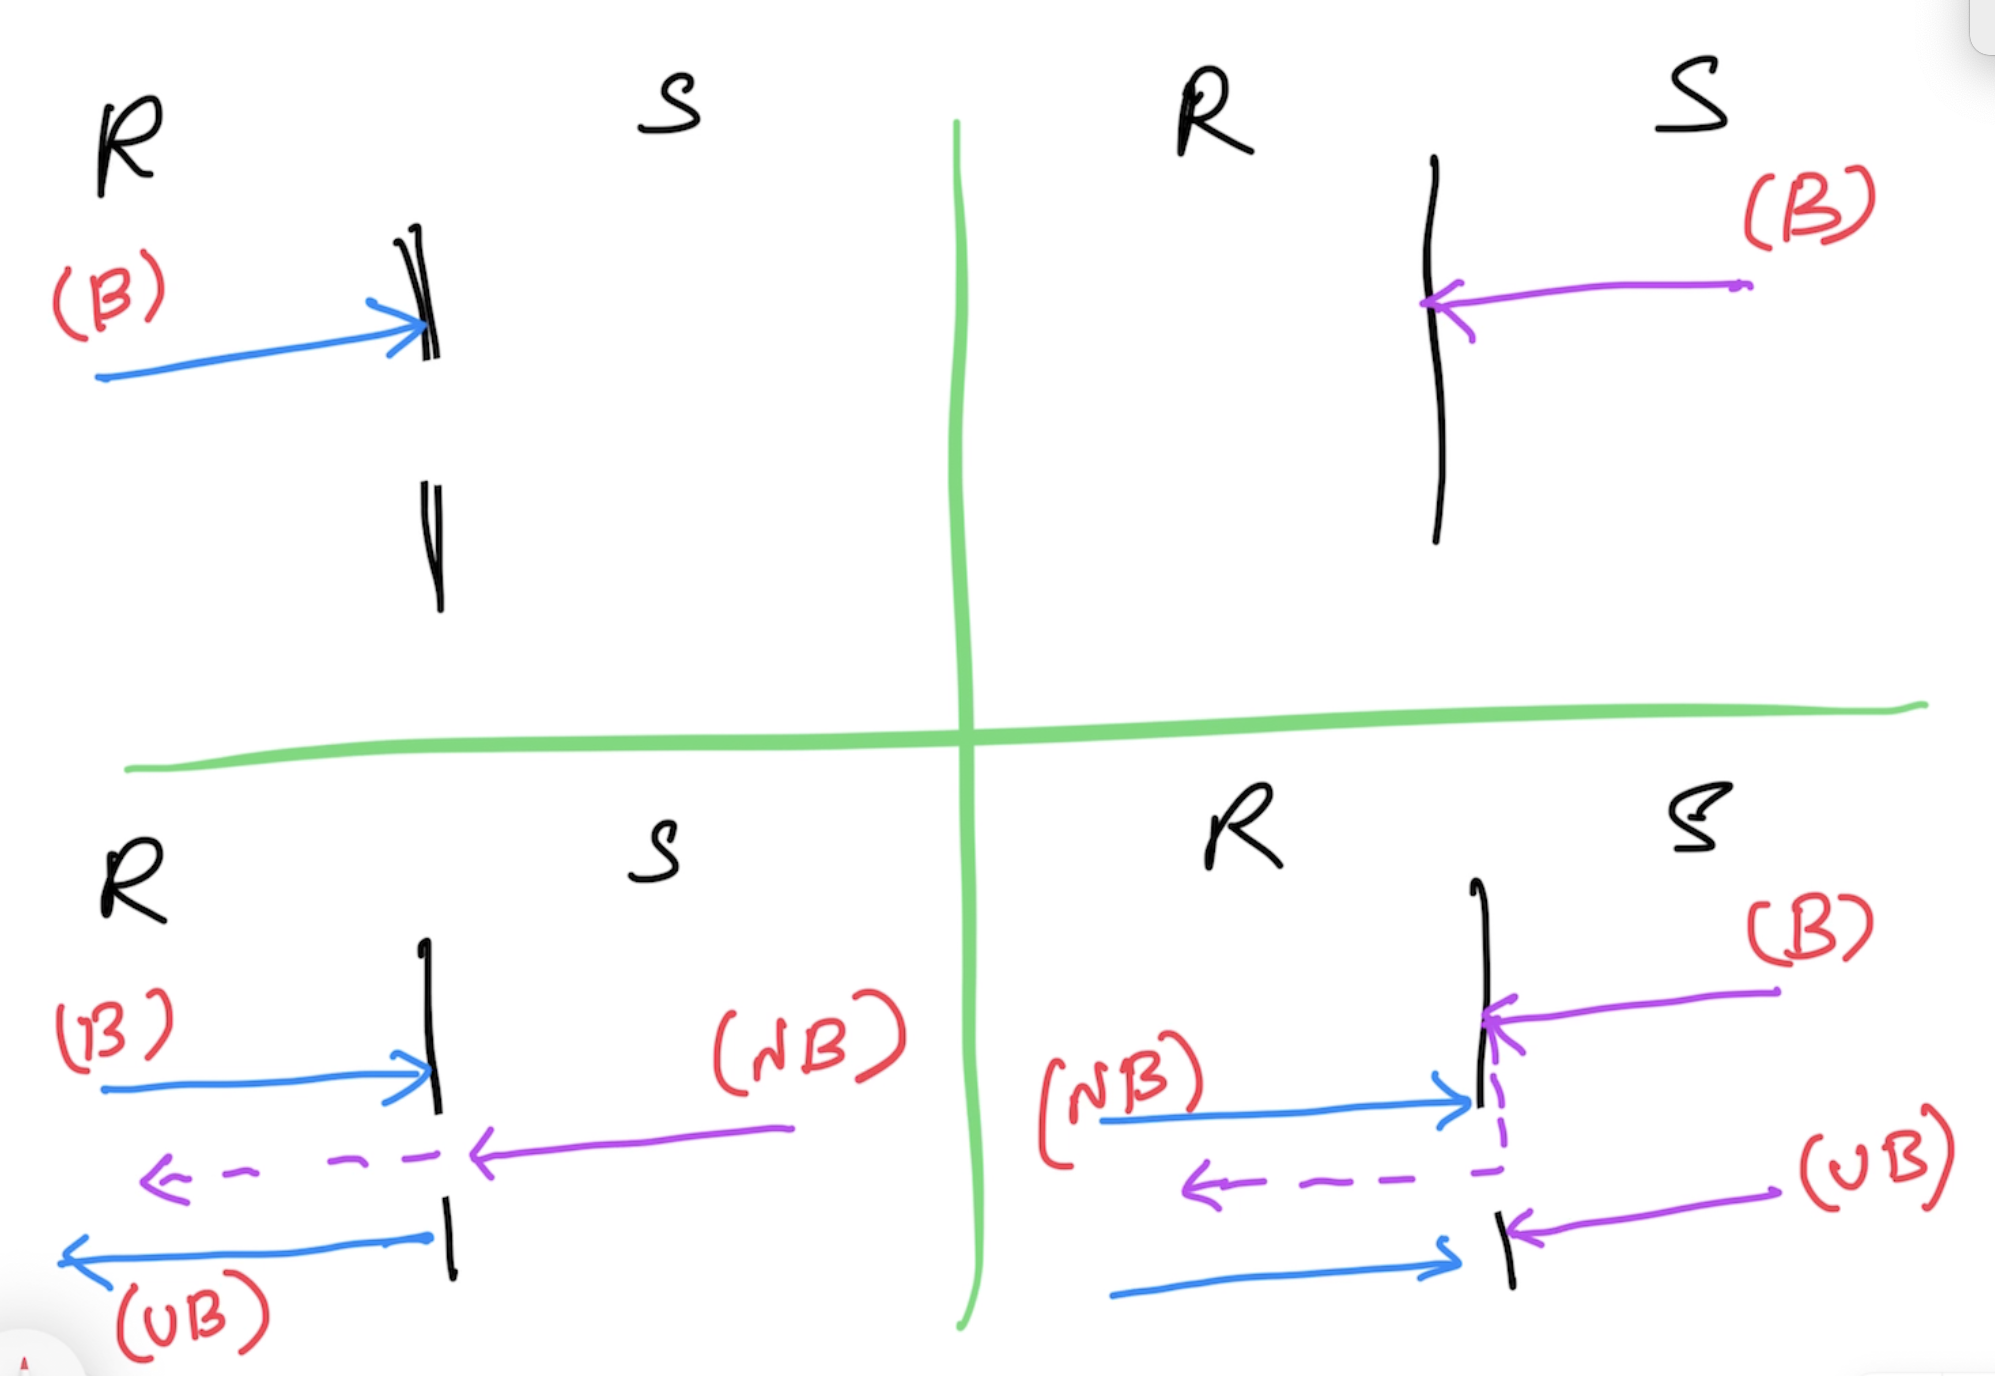 R S
(B)
R S
(B)
R S
(B)
(NB)
(UB)
R S
(B)
(NB)
(UB)